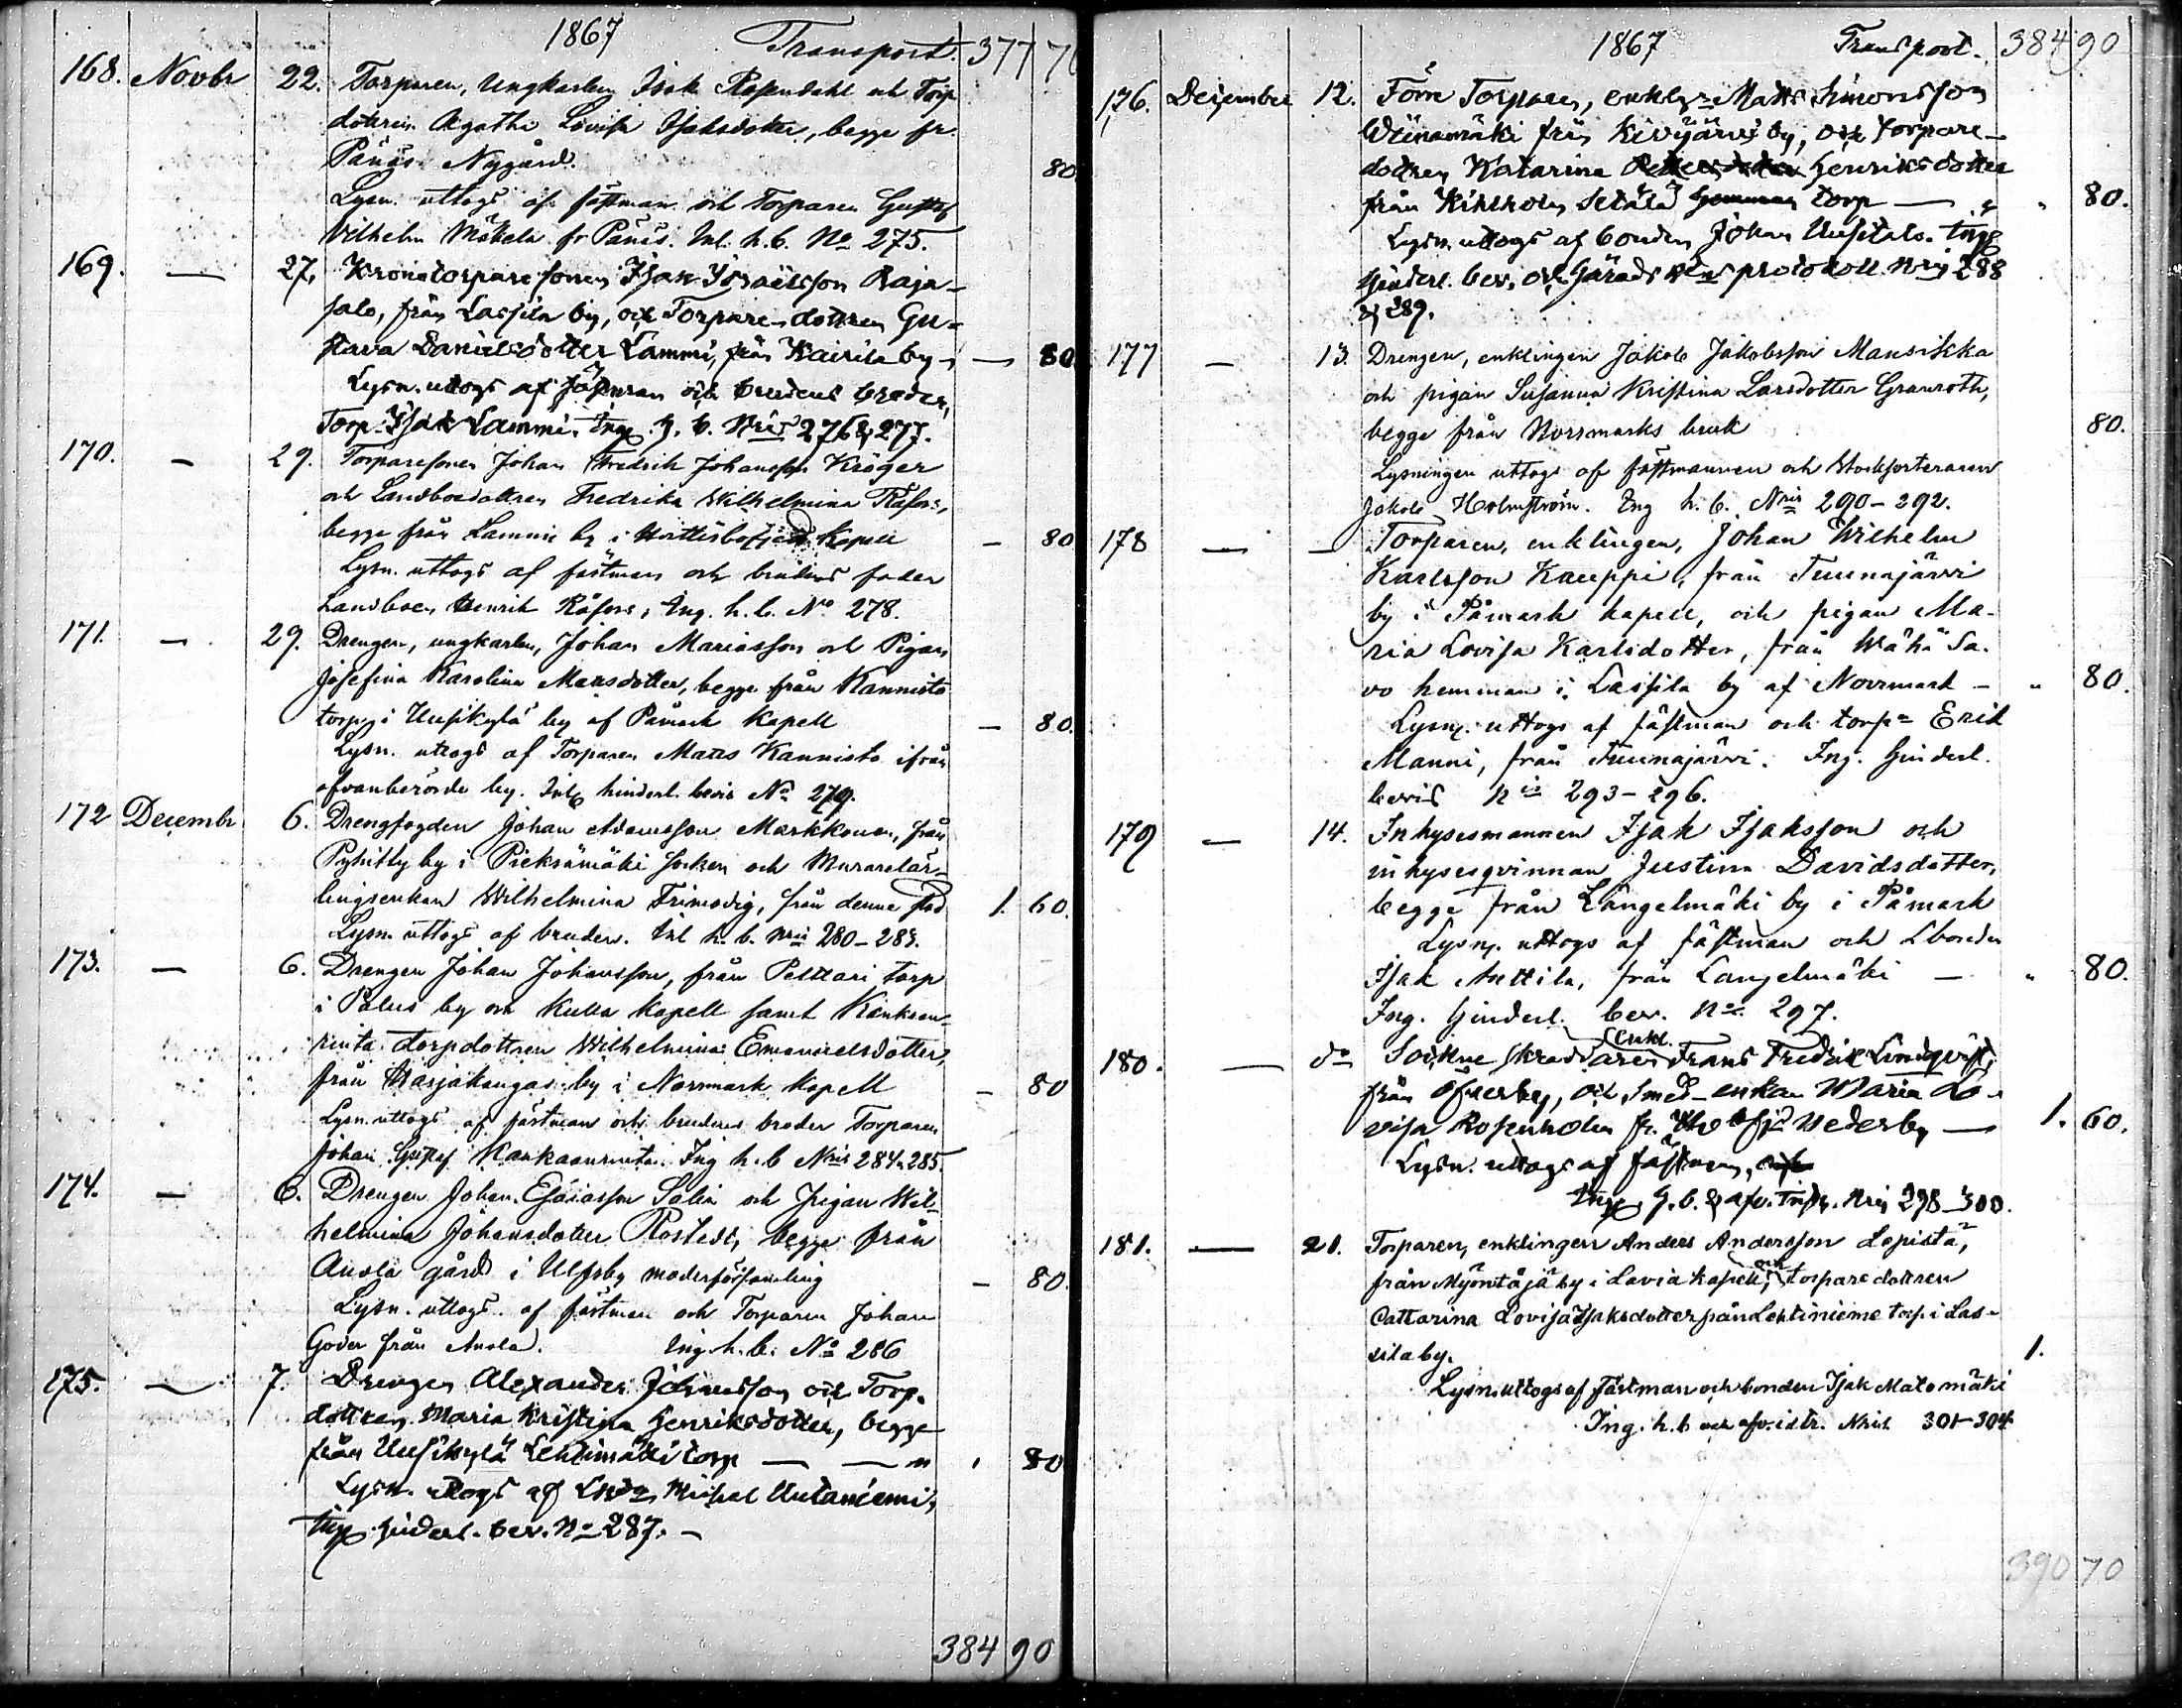 1867 Transport. 377 70
168. Novbr 22. Torparen, Ungkarlen Isak Rosendahl och Torp
dottren Agatha Lovisa Isaksdotter, begge fr.
Pänäs Nygård. 80.
Lysn. uttogs af fästman och Torparen Gustaf
Vilhelm Mäkelä fr. Pänäs. Inl. h. b. No 275.
169. — 27. Kronotorparesonen Isak Israelsson Raja-
salo, från Lassila by, och Torpare-dottren Gu-
stava Danielsdotter Lammi, från Kairila by — — 80
Lysn. uttogs af fästman och brudens broder,
Torp. Isak Lammi. Ing. h. b. Nris 276 & 277.
170. — 29. Torparesonen Johan Fredrik Johansson Kröger
och Landboedottren Fredrika Wilhelmina Råfors,
begge från Lammi by i Hvittisbofjerd Kapell — 80
Lysn. uttogs af fästman och brudens fader
Landboen Henrik Råfors, Ing. h. b. No 278.
171. — 29. Drengen, ungkarlen, Johan Mariasson och Pigan
Josefina Karolina Matsdotter, begge från Kannisto
torp i Uusikylä by af Påmark Kapell — 80.
Lysn. uttogs af Torparen Matts Kannisto ifrån
ofvanberörde by. Inl. hinderl. bevis No 279.
172 Decembr 6. Drengfogden Johan Adamsson Markkonen, från
Pyhitty by i Pieksämäki socken och Murarelär-
lingsenkan Wilhelmina Frimodig, från denne stad 1. 60.
Lysn. uttogs af bruden. Inl h. b. Nris 280-283.
173. — 6. Drengen Johan Johansson, från Pelttari torp
i Palus by och Kulla Kapell samt Kankaan-
rinta torpdottren Wilhelmina Emanuelsdotter,
från Harjakangas by i Norrmark Kapell — 80
Lysn. uttogs af fästman och brudens broder Torparen
Johan Gustaf Kankaanrinta. Ing h. b Nris 284 & 285.
174. — 6. Drengen Johan Esaiasson Salin och pigan Wil-
helmina Johansdotter Rostedt, begge från
Anola gård i Ulfsby moderförsamling — 80.
Lysn. uttogs af fästman och Torparen Johan
Goder från Anola. Ing. h. b. No 286
175. — 7. Drengen Alexander Johansson och Torp.
dottren Maria Kristina Henriksdotter, begge
från Uusikylä Lehtimäki torp — — " 80
Lysn. uttogs af
Ing. hinderl. bev. No 287. —
384 90
1867 Transport. 384 90
176. December 12. Förre Torparen, enkl. Matts Simonsson
från Kivijärvi by, och torpare-
dottren Katarina Henriksdotter
från Setälä torp — " " 80.
Lysn. uttogs af bonden Johan Uusitalo. Ing.
hinderl. bev. och Häradsrätts protokoll Nris 288
& 289.
177 — 13. Drengen, enklingen Jakob Jakobsson Mansikka
och pigan Susanna Kristina Larsdotter Granroth,
begge från Norrmarks bruk 80.
Lysningen uttogs af fästmannen och Stocksorteraren
Jakob Holmström. Ing h. b. Nris 290-292.
178 — — Torparen, enklingen, Johan Wilhelm
Karlsson Kauppi, från Tuunajärvi
by i Påmark kapell, och pigan Ma-
ria Lovisa Karlsdotter, från Wähä Sa-
vo hemman i Lassila by af Norrmark — " 80.
Lysn. uttogs af fästman och torp. Erik
Manni, från Tuunajärvi. Ing. hinderl.
bevis Nis 293-296.
179 — 14. Inhysesmannen Isak Isaksson och
inhysesqvinnan Justina Davidsdotter,
begge från Längelmäki by i Påmark
Lysn. uttogs af fästman och Lbonden
Isak Anttila, från Langelmäki — " 80.
Ing. hinderl. bev. No 297.
180. — do Sockne skräddaren enkl. Frans Fredrik Lindqvist,
från Öfverby, och Smeds-enkan Maria Lo-
visa Rosenholm fr. Nederby — 1. 60.
Lysn. uttogs af fästman,
Ing. h. b. & afv. Nris 298-300.
181. — 21. Torparen, enklingen Anders Andersson Lepistä,
från Myöntäjä by i Lavia kapell, och torparedottren
Cattarina Lovisa Isaksdotter från Lehtinieme torp i Las-
sila by. 1.
Lysn. uttogs af fästman och bonden Isak Matomäki
Ing. h. b. och afv. idtr. Nris 301-304
390 70